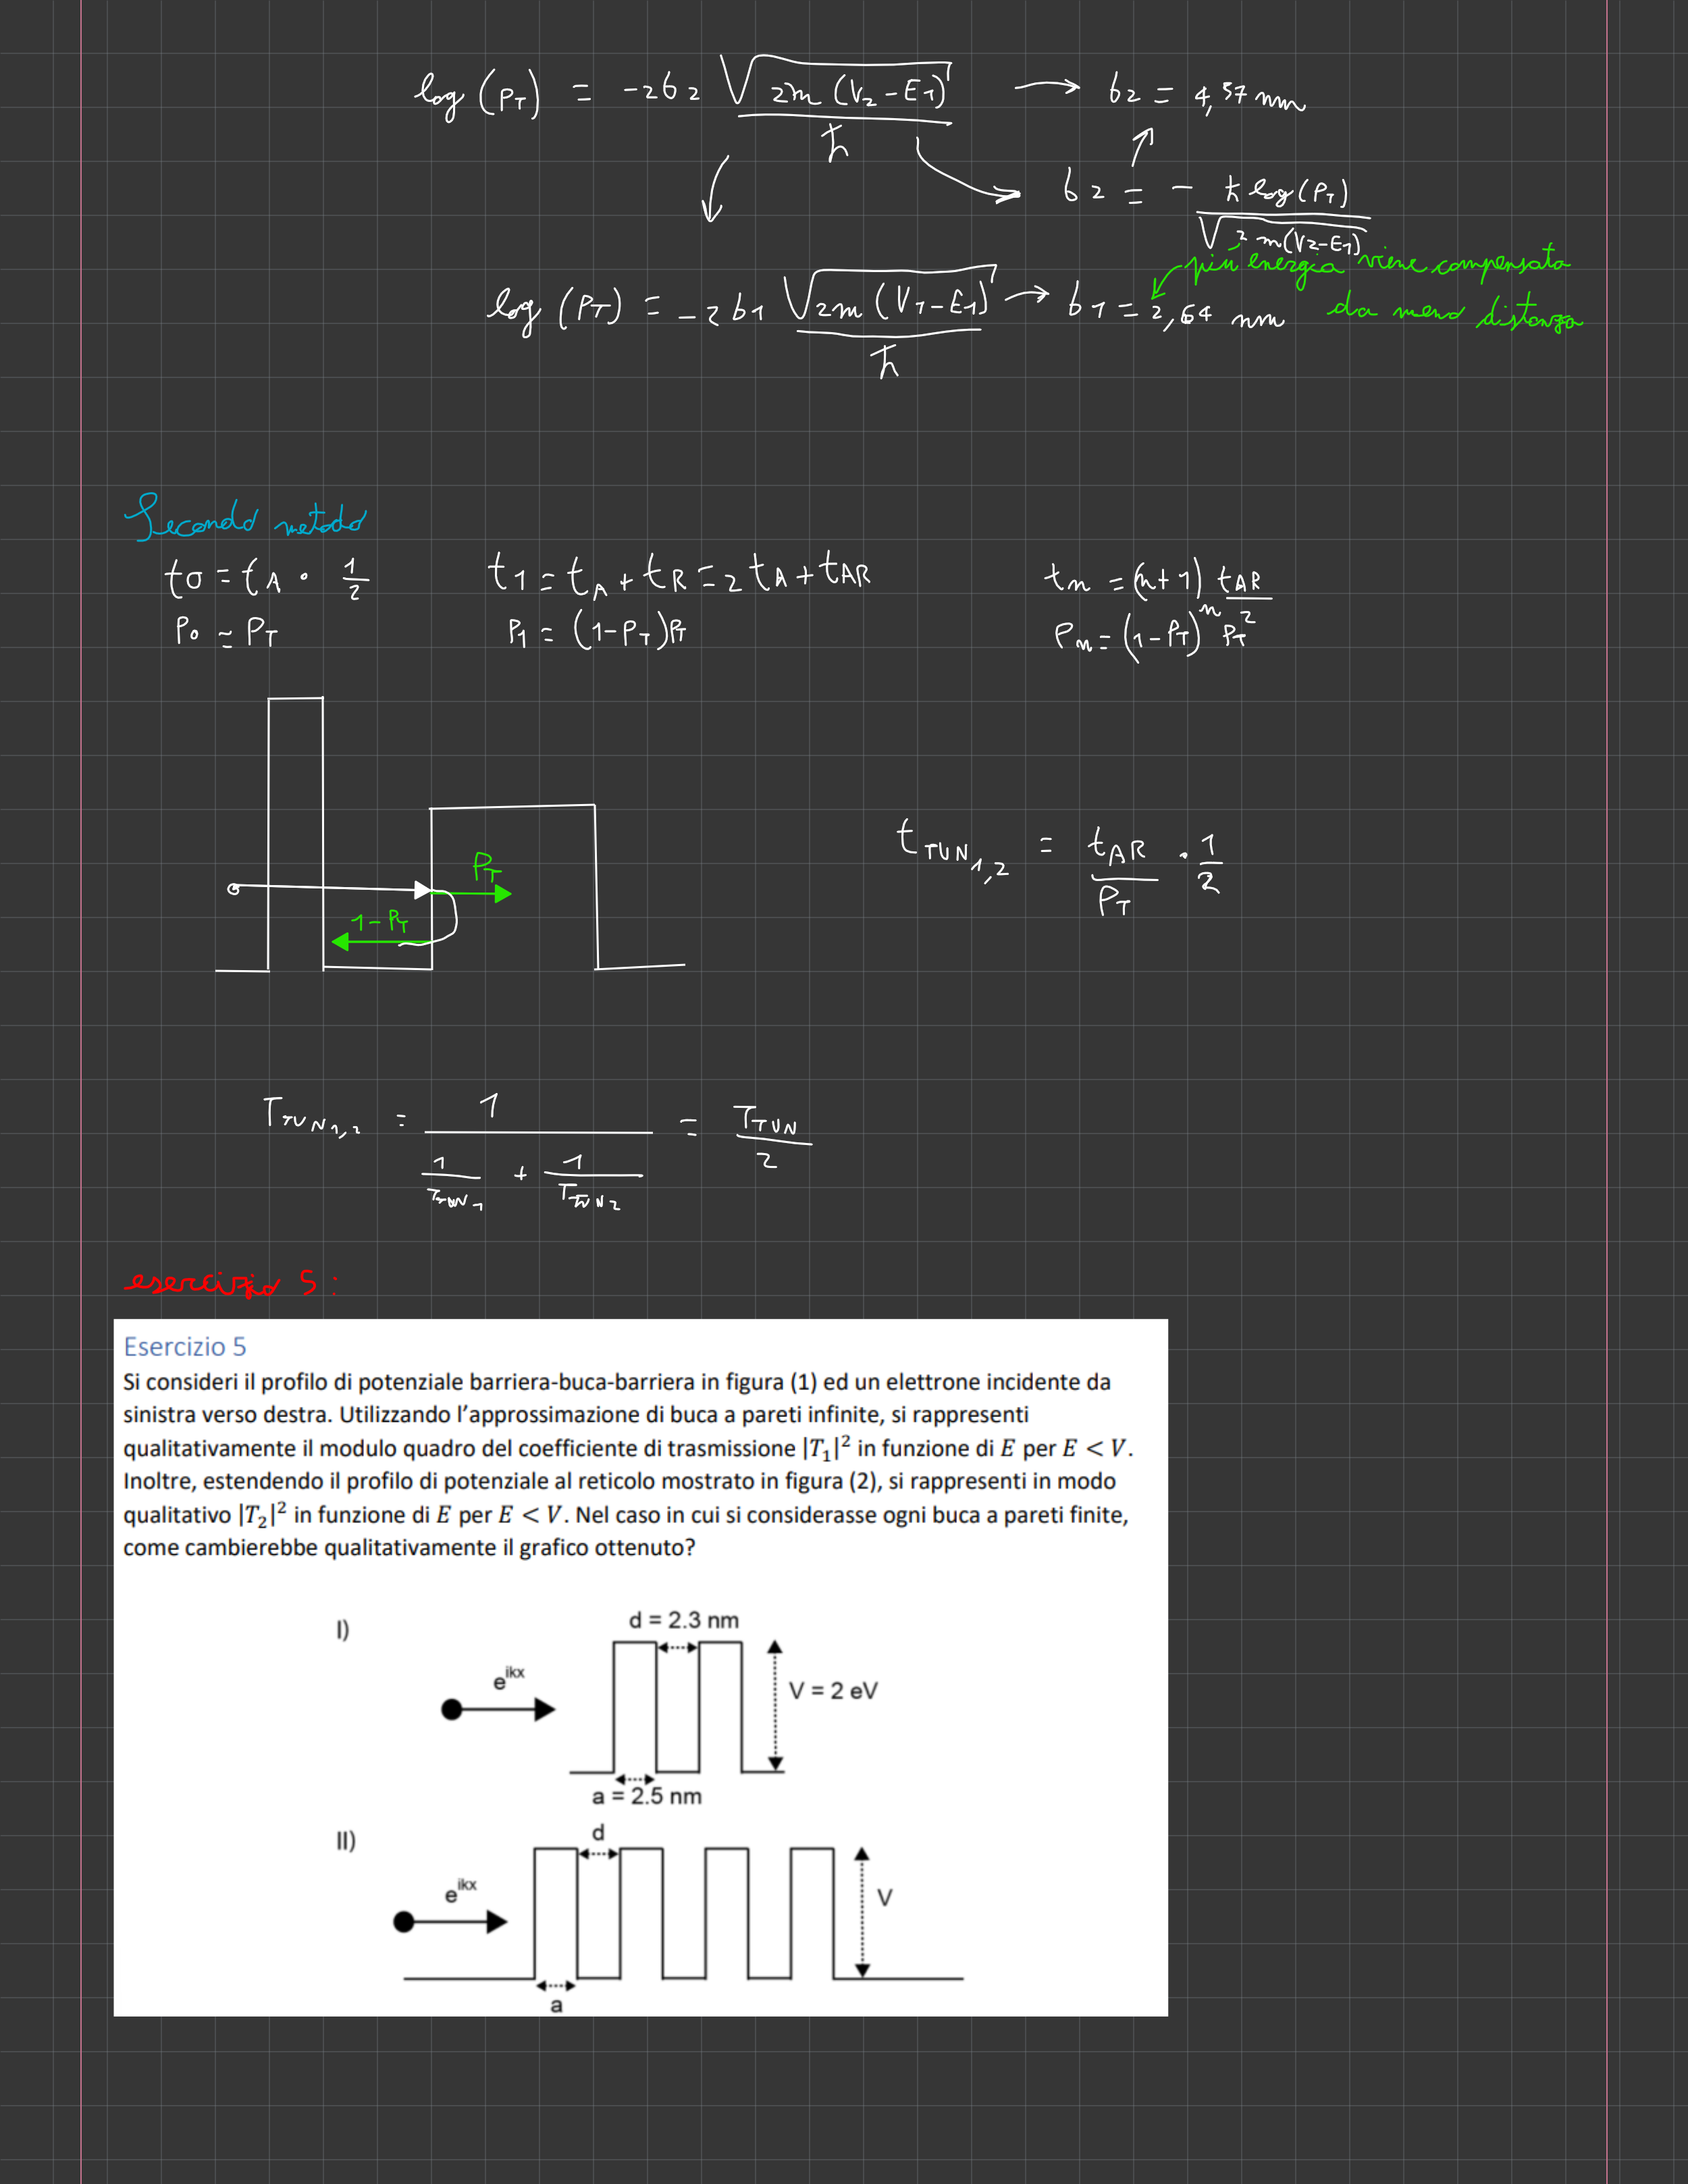 log (P_T) = -2b_2 √(2m (V_2 - E_1)) / ħ → b_2 = 4,57 nm
b_2 = - ħ log(P_T) / √(2m(V_2-E_1))
log (P_T) = -2b_1 √(2m (V_1 - E_1)) / ħ → b_1 = 2,64 nm
più energia viene compensata
da meno distanza
Secondo metodo
t_0 = t_A · 1/2 t_1 = t_A + t_R = 2 t_A + t_AR t_n = (n+1) t_AR / 2
P_0 ≃ P_T P_1 = (1-P_T)P_T P_n = (1-P_T)^n P_T
P_T
1-P_T
t_TUN_1,2 = t_AR / P_T · 1/2
T_TUN_1,2 = 1 / (1/T_TUN_1 + 1/T_TUN_2) = T_TUN / 2
esercizio 5:
Esercizio 5
Si consideri il profilo di potenziale barriera-buca-barriera in figura (1) ed un elettrone incidente da
sinistra verso destra. Utilizzando l'approssimazione di buca a pareti infinite, si rappresenti
qualitativamente il modulo quadro del coefficiente di trasmissione |T₁|² in funzione di E per E < V.
Inoltre, estendendo il profilo di potenziale al reticolo mostrato in figura (2), si rappresenti in modo
qualitativo |T₂|² in funzione di E per E < V. Nel caso in cui si considerasse ogni buca a pareti finite,
come cambierebbe qualitativamente il grafico ottenuto?
I)
d = 2.3 nm
e^ikx
V = 2 eV
a = 2.5 nm
II)
d
e^ikx
V
a